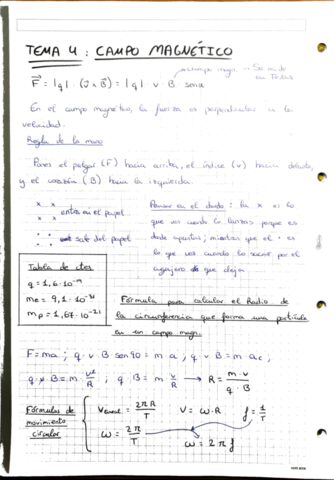 TEMA 4 : CAMPO MAGNÉTICO
campo magn. → Se mide en Teslas
F = |q| · (v x B) = |q| · v · B senα
En el campo magnético, la fuerza es perpendicular a la
velocidad.
Regla de la mano
Pones el pulgar (F) hacia arriba, el índice (v) hacia delante,
y el corazón (B) hacia la izquierda.
x x
x x entra en el papel
· ·
· · sale del papel
Pensar en el dardo : la x es lo
que ves cuando lo lanzas porque es
donde apuntas; mientras que el · es
lo que ves cuando lo
agujero que deja
Tabla de ctes
q = 1,6·10⁻¹⁹
me = 9,1·10⁻³¹
mp = 1,67·10⁻²¹
Fórmula para calcular el Radio de
la circunferencia que forma una partícula
en un campo magn.
F = m a ; q · v · B sen 90 = m a ; q · v B = m ac ;
q · v · B = m · v²/R ; q · B = m v/R → R = m·v / q·B
Fórmulas de movimiento circular
V = 2πR/T V = ω·R f = 1/T
ω = 2π/T ω = 2πf